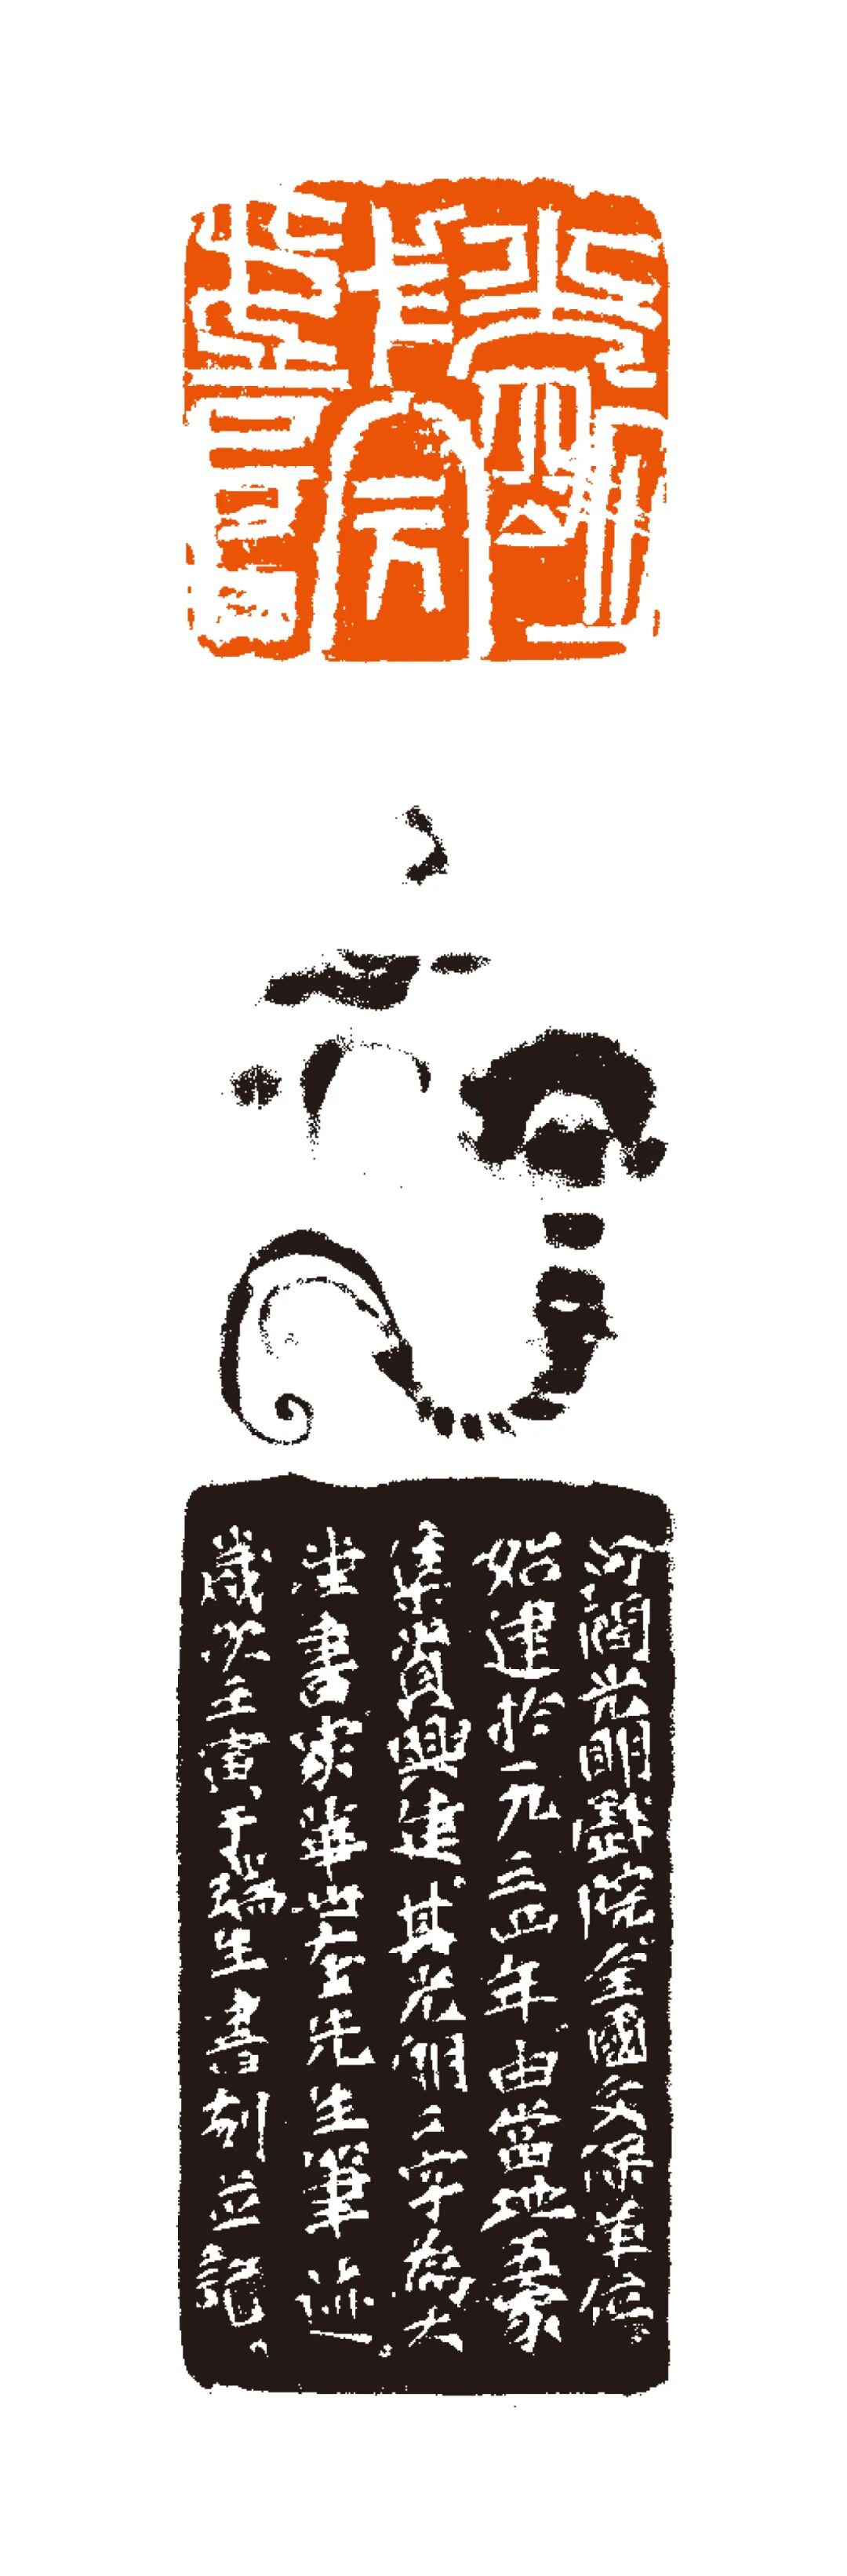 光明戲院
河間光明戲院全國文保單位
始建於一九三四年由當地豪
集資興建其光明二字為天
津書家華世奎先生筆迹
歲次壬寅于瑞生書刻並記